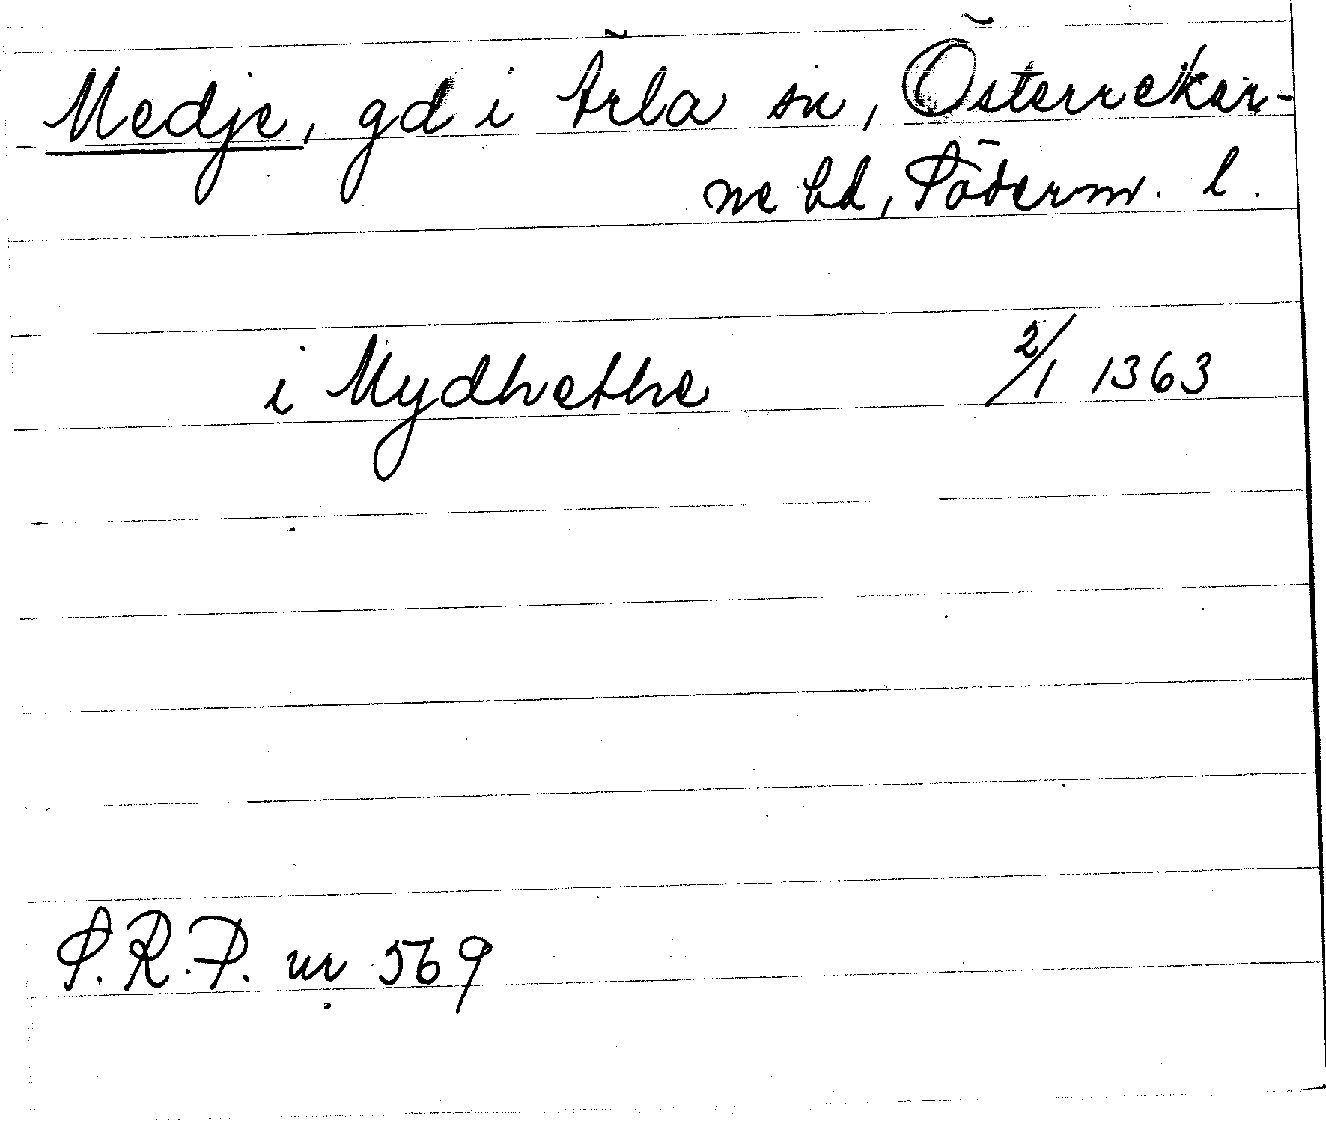 Medje, gd i Ärla sn, Österrekar-
ne hd, Söderm. l.
i Mydhethe 2/1 1363
S.R.P. nr 569